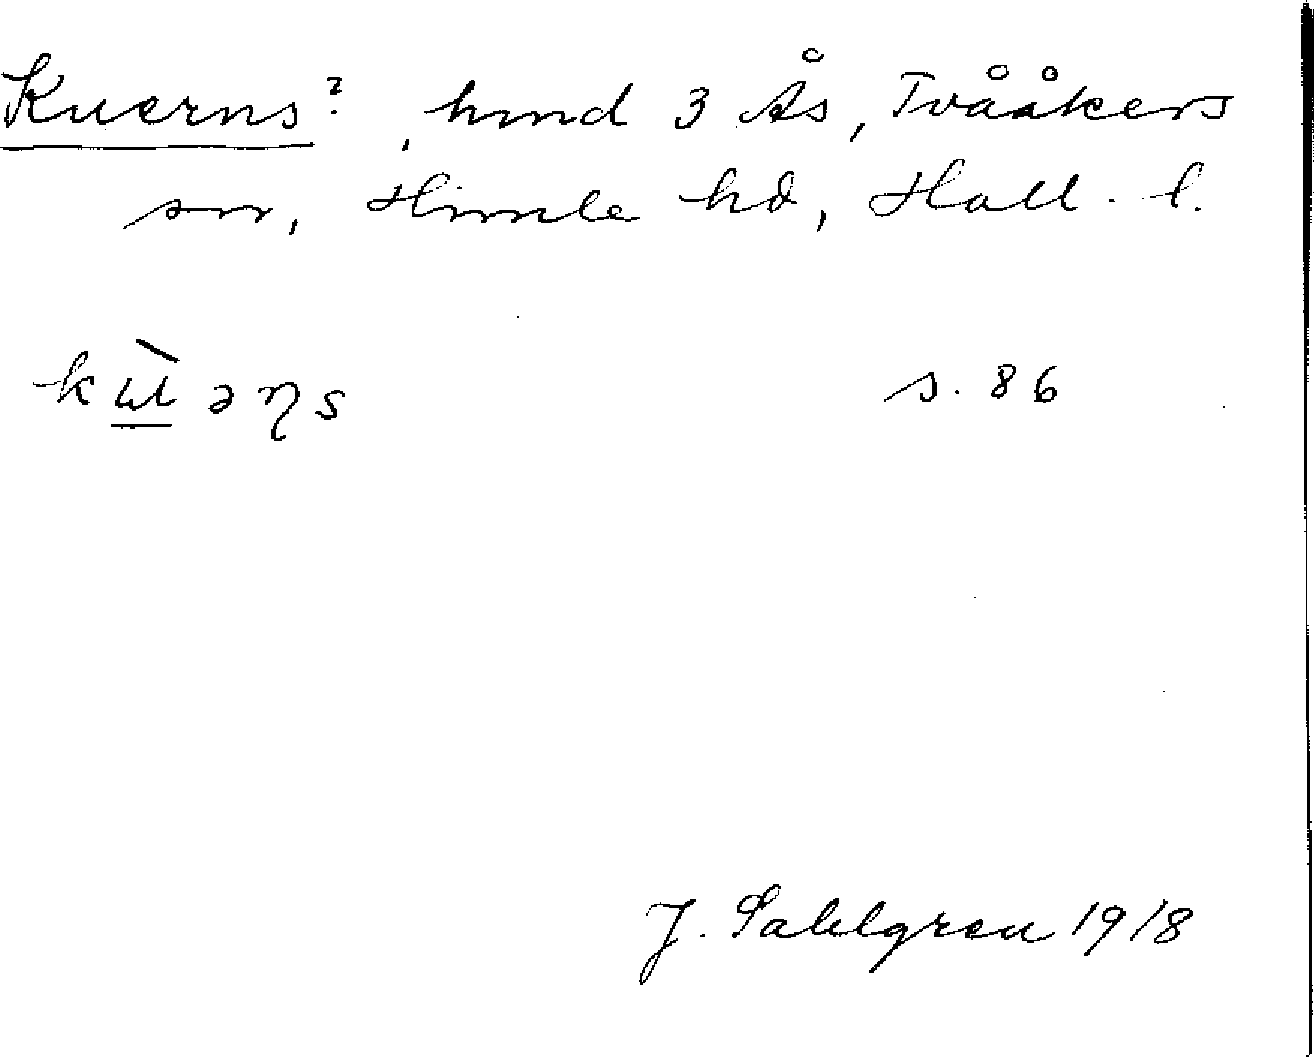 Kuerns?, hmd 3 Ås, Tvååkers
sn, Himle hd, Hall. l.
kɯ̀əɳs s. 86
J. Sahlgren 1918